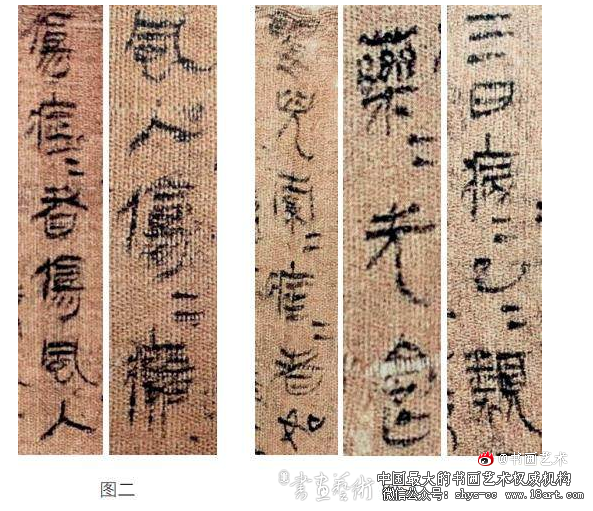 三日病〓已〓親
藥〓先食
嬰兒索〓痙〓者如
風入傷〓
傷痙〓者傷風入
图二
@书画艺术
書畫藝術
中国最大的书画艺术权威机构
微信公众号：shys-cc www.18art.com